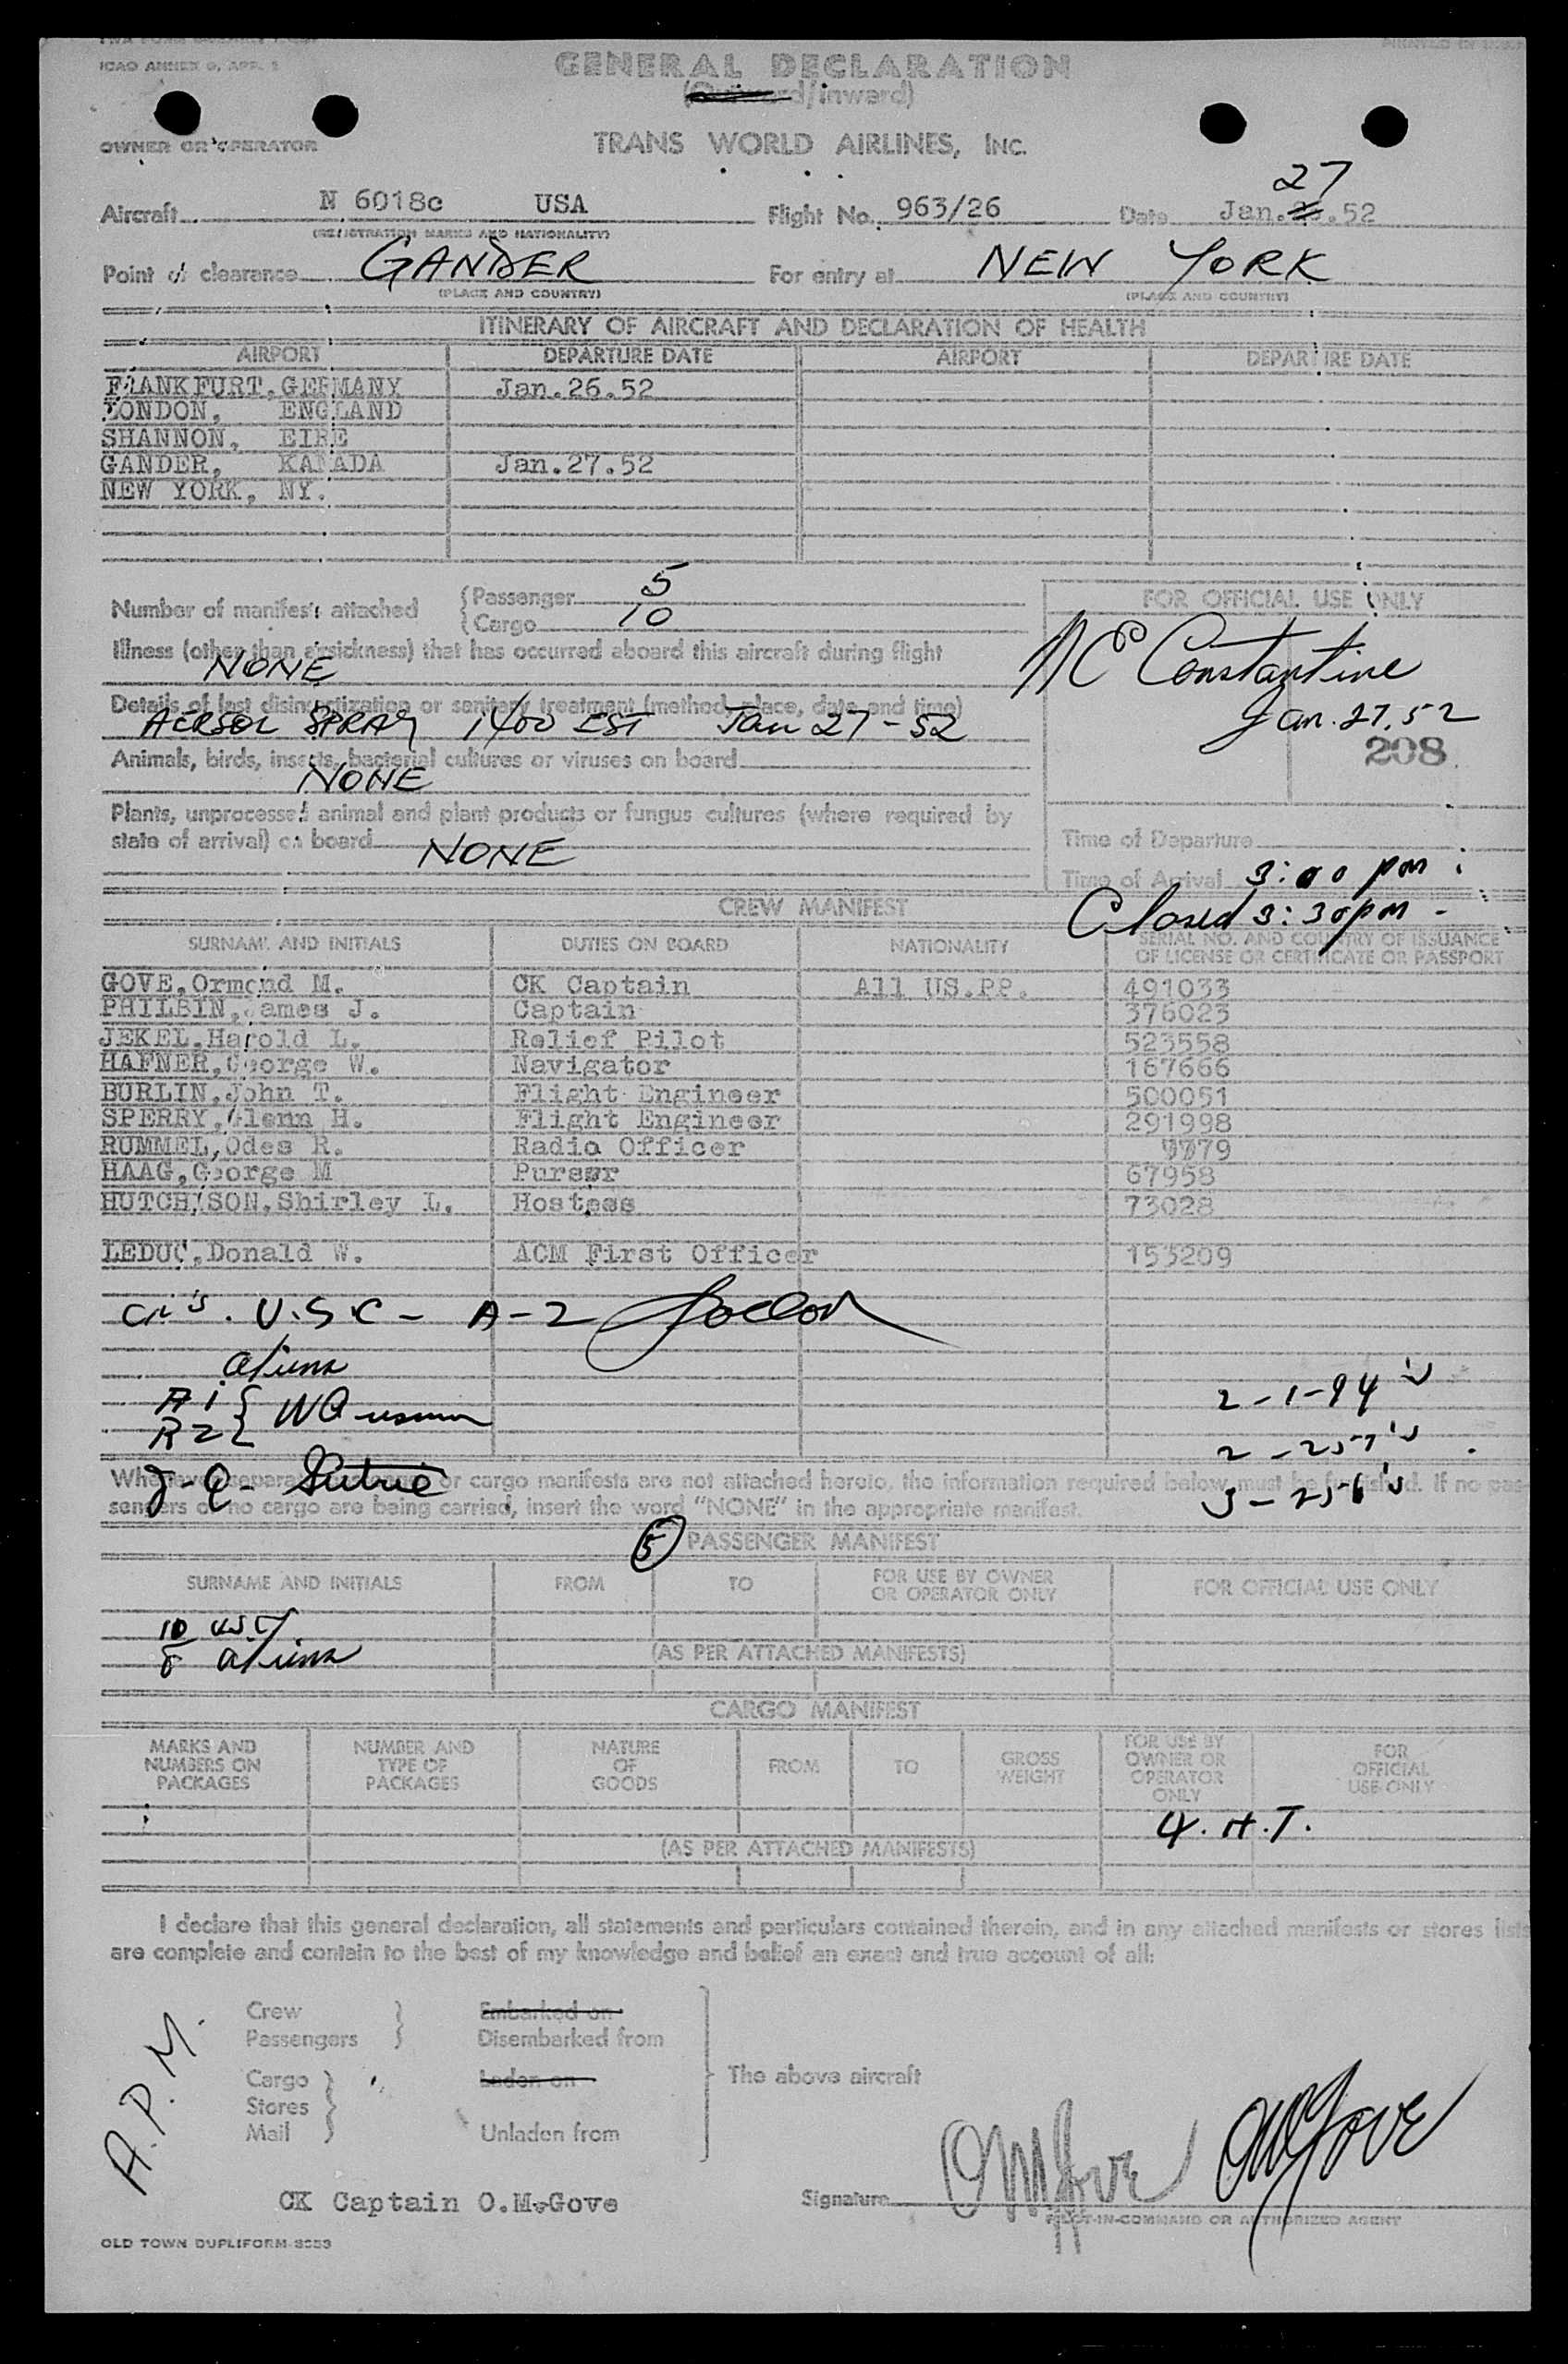 ICAO ANNEX 9, APP. 1
GENERAL DECLARATION
(Outward/inward)
OWNER OR OPERATOR
TRANS WORLD AIRLINES, INC.
27
Aircraft N 6018c USA Flight No. 963/26 Date Jan. .52
(REGISTRATION MARKS AND NATIONALITY)
Point of clearance GANDER For entry at NEW YORK
(PLACE AND COUNTRY) (PLACE AND COUNTRY)
ITINERARY OF AIRCRAFT AND DECLARATION OF HEALTH
AIRPORT DEPARTURE DATE AIRPORT DEPARTURE DATE
FRANKFURT, GERMANY Jan.26.52
LONDON, ENGLAND
SHANNON, EIRE
GANDER, KANADA Jan.27.52
NEW YORK, NY.
Number of manifests attached {Passenger 5
{Cargo 10
FOR OFFICIAL USE ONLY
Illness (other than airsickness) that has occurred aboard this aircraft during flight
NONE
N C Constantine
Details of last disinsectization or sanitary treatment (method, place, date, and time)
AERSOL SPRAY 1400 EST Jan 27-52
Jan. 27, 52
208
Animals, birds, insects, bacterial cultures or viruses on board
NONE
Plants, unprocessed animal and plant products or fungus cultures (where required by
state of arrival) on board NONE
Time of Departure
Time of Arrival 3:00 pm
Closed 3:30 pm -
CREW MANIFEST
SURNAME AND INITIALS DUTIES ON BOARD NATIONALITY SERIAL NO. AND COUNTRY OF ISSUANCE
OF LICENSE OR CERTIFICATE OR PASSPORT
GOVE, Ormond M. CK Captain All US.PP. 491033
PHILBIN, James J. Captain 376023
JEKEL, Harold L. Relief Pilot 523558
HAFNER, George W. Navigator 167666
BURLIN, John T. Flight Engineer 500051
SPERRY, Glenn H. Flight Engineer 291998
RUMMEL, Odes R. Radio Officer 79
HAAG, George M Purser 67958
HUTCHISON, Shirley L. Hostess 73028
LEDUC, Donald W. ACM First Officer 153209
U.S.C - A-2
aliens
A 1
R 2
2-1-94's
2-257's
3-256's
Whenever separate passenger or cargo manifests are not attached hereto, the information required below must be furnished. If no pas-
sengers or no cargo are being carried, insert the word "NONE" in the appropriate manifest.
5 PASSENGER MANIFEST
SURNAME AND INITIALS FROM TO FOR USE BY OWNER
OR OPERATOR ONLY FOR OFFICIAL USE ONLY
10 usc
8 aliens
(AS PER ATTACHED MANIFESTS)
CARGO MANIFEST
MARKS AND NUMBERS ON PACKAGES NUMBER AND TYPE OF PACKAGES NATURE OF GOODS FROM TO GROSS WEIGHT FOR USE BY OWNER OR OPERATOR ONLY FOR OFFICIAL USE ONLY
4. H.T.
(AS PER ATTACHED MANIFESTS)
I declare that this general declaration, all statements and particulars contained therein, and in any attached manifests or stores lists
are complete and contain to the best of my knowledge and belief an exact and true account of all:
A.P.M.
Crew Embarked on
Passengers Disembarked from
Cargo Laden on The above aircraft
Stores
Mail Unladen from
CK Captain O.M.Gove Signature OM Gove OM Gove
PILOT-IN-COMMAND OR AUTHORIZED AGENT
OLD TOWN DUPLIFORM